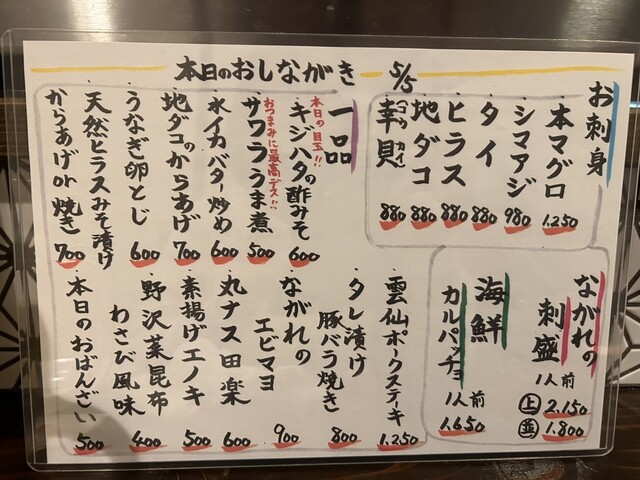 本日のおしながき 5/5
お刺身
本マグロ 1.250
シマアジ 980
タイ 880
ヒラス 880
地ダコ 880
幸貝 コウカイ 880
ながれの
刺盛
1人前
上 2.150
並 1.800
海鮮
カルパッチョ
1人前
1.650
一品
本日の目玉!!
・キジハタの酢みそ 600
おつまみに最高デス!!
・サワラうま煮 500
・水イカバター炒め 600
・地ダコのからあげ 700
・うなぎ卵とじ 600
・天然ヒラスみそ漬け
からあげor焼き 700
・雲仙ポークステーキ 1.250
・タレ漬け
豚バラ焼き 800
・ながれの
エビマヨ 900
・丸ナス田楽 600
・素揚げエノキ 500
・野沢菜昆布
わさび風味 400
・本日のおばんざい 500